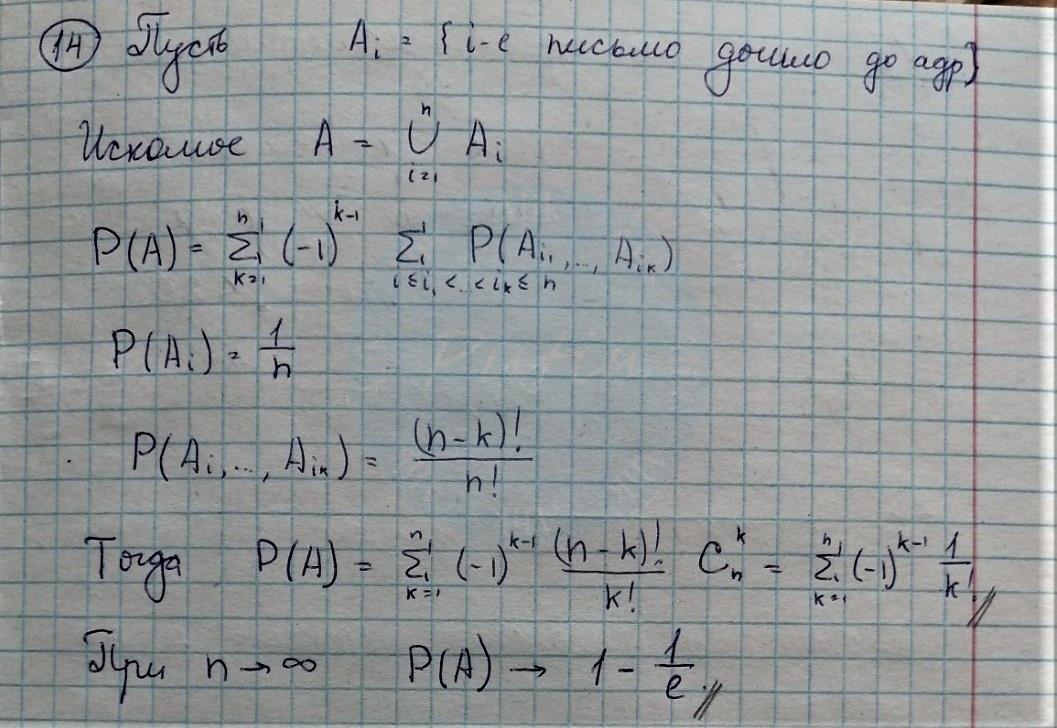 14 Пусть A_i = {i-е письмо дошло до адр}
Искомое A = ⋃_{i=1}^{n} A_i
P(A) = ∑_{k=1}^{n} (-1)^{k-1} ∑_{i≤i_1<..<i_k≤n} P(A_{i_1},..., A_{i_k})
P(A_i) = 1/n
P(A_i,..., A_{i_k}) = (n-k)!/n!
Тогда P(A) = ∑_{k=1}^{n} (-1)^{k-1} (n-k)!/k! C_n^k = ∑_{k=1}^{n} (-1)^{k-1} 1/k!
При n → ∞ P(A) → 1 - 1/e